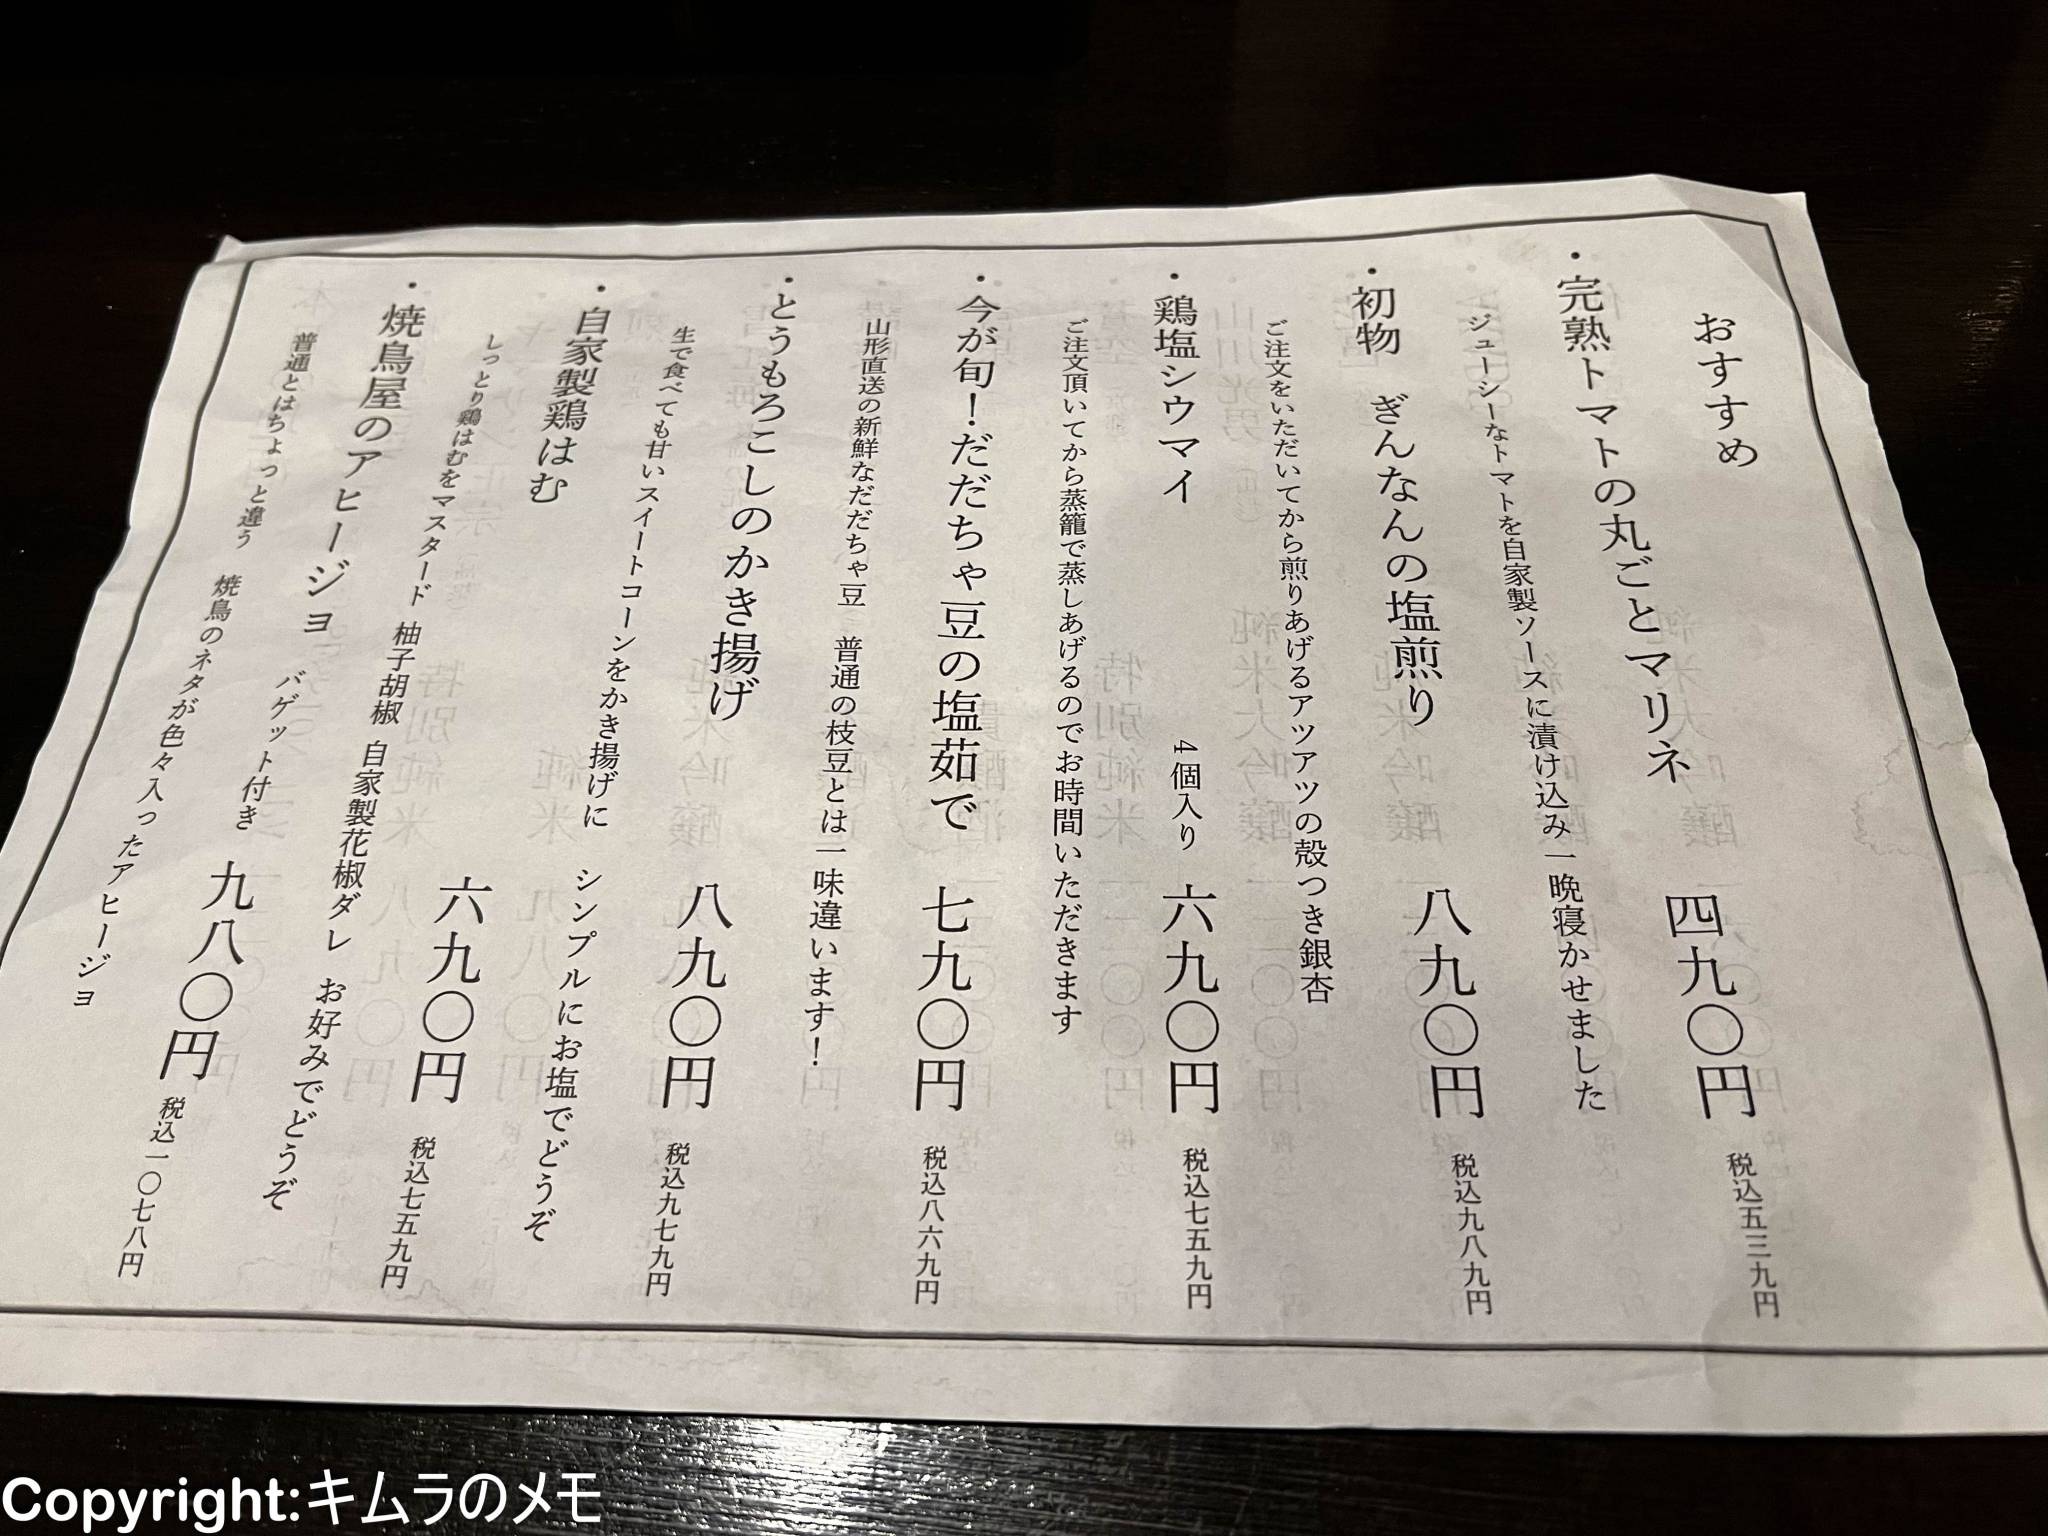 おすすめ
・完熟トマトの丸ごとマリネ 四九〇円 税込五三九円
ジューシーなトマトを自家製ソースに漬け込み一晩寝かせました
・初物 ぎんなんの塩煎り 八九〇円 税込九八九円
ご注文をいただいてから煎りあげるアツアツの殻つき銀杏
・鶏塩シウマイ 4個入り 六九〇円 税込七五九円
ご注文頂いてから蒸籠で蒸しあげるのでお時間いただきます
・今が旬！だだちゃ豆の塩茹で 七九〇円 税込八六九円
山形直送の新鮮なだだちゃ豆 普通の枝豆とは一味違います！
・とうもろこしのかき揚げ 八九〇円 税込九七九円
生で食べても甘いスイートコーンをかき揚げに シンプルにお塩でどうぞ
・自家製鶏はむ 六九〇円 税込七五九円
しっとり鶏はむをマスタード 柚子胡椒 自家製花椒ダレ お好みでどうぞ
・焼鳥屋のアヒージョ バゲット付き 九八〇円 税込一〇七八円
普通とはちょっと違う 焼鳥のネタが色々入ったアヒージョ
Copyright:キムラのメモ